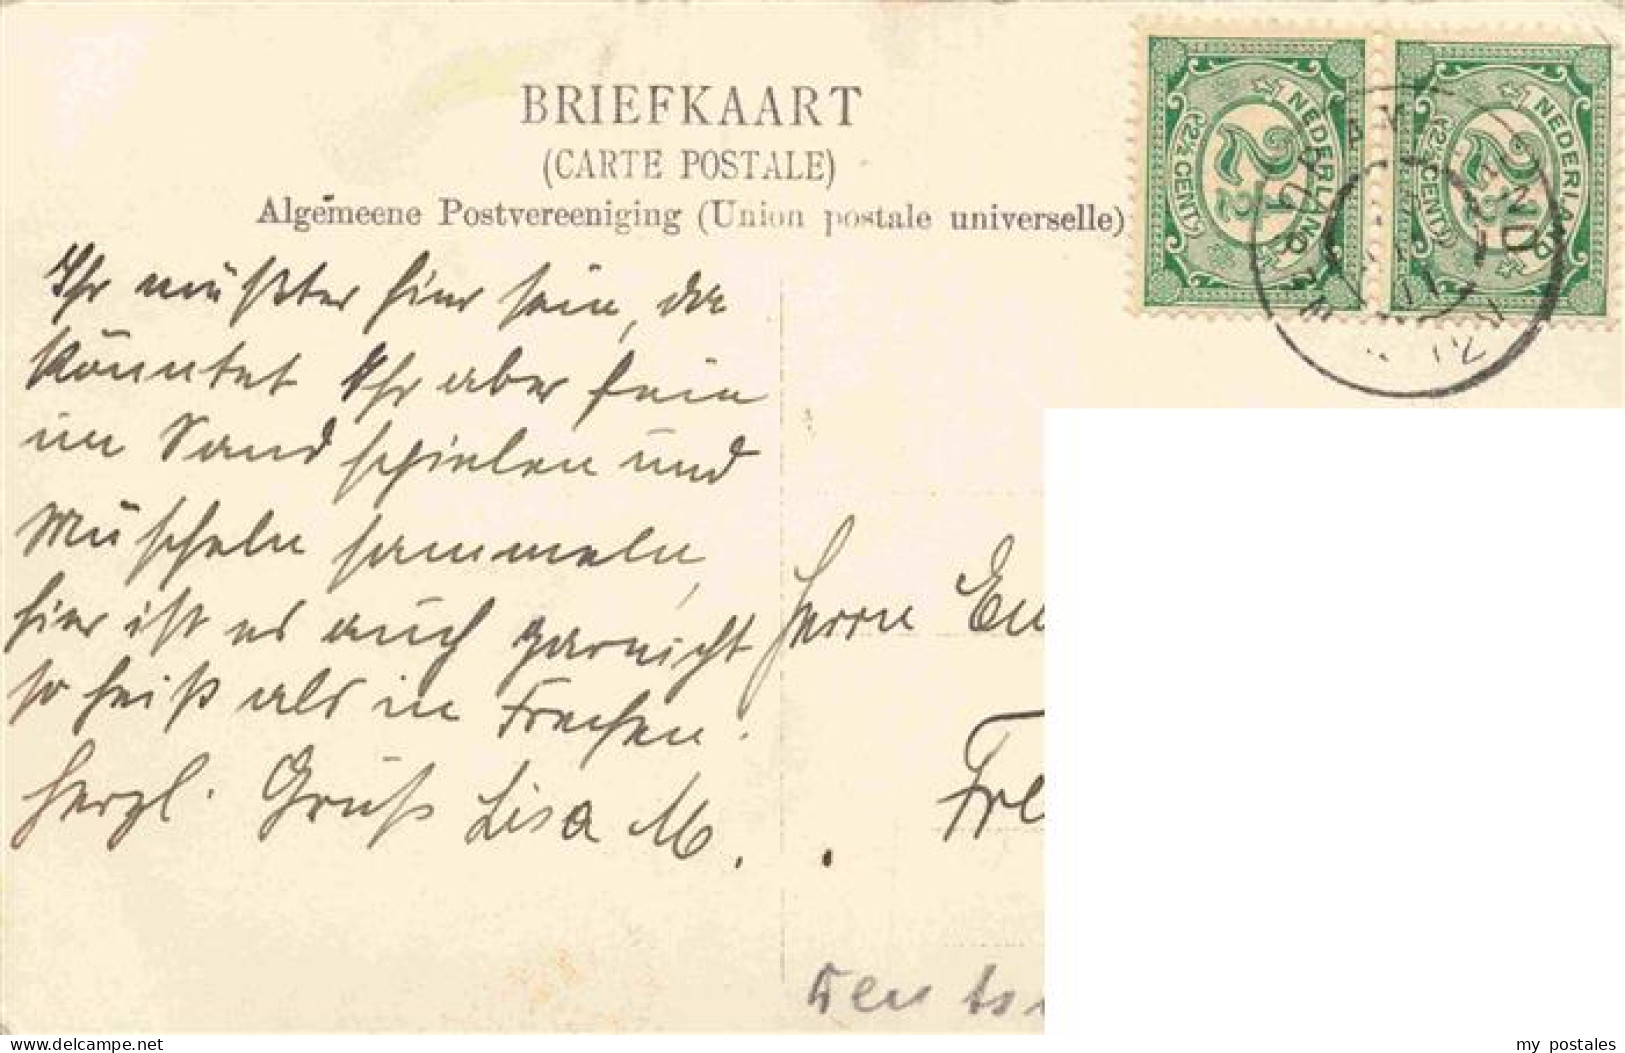 BRIEFKAART
(CARTE POSTALE)
Algemeene Postvereeniging (Union postale universelle)
NEDERLAND
2½ CENT
NEDERLAND
2½ CENT
Ihr müßtet hier sein, da
könntet Ihr aber fein
im Sand spielen und
Muscheln sammeln,
hier ist es auch garnicht
so heiß als in Frechen.
Herzl. Gruß Lisa M.
Herrn
Fre
my postales
www.delcampe.net